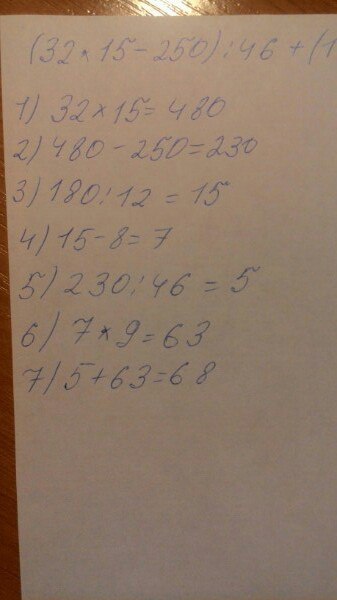 (32×15-250):46+(1
1) 32×15=480
2) 480-250=230
3) 180:12=15
4) 15-8=7
5) 230:46=5
6) 7×9=63
7) 5+63=68